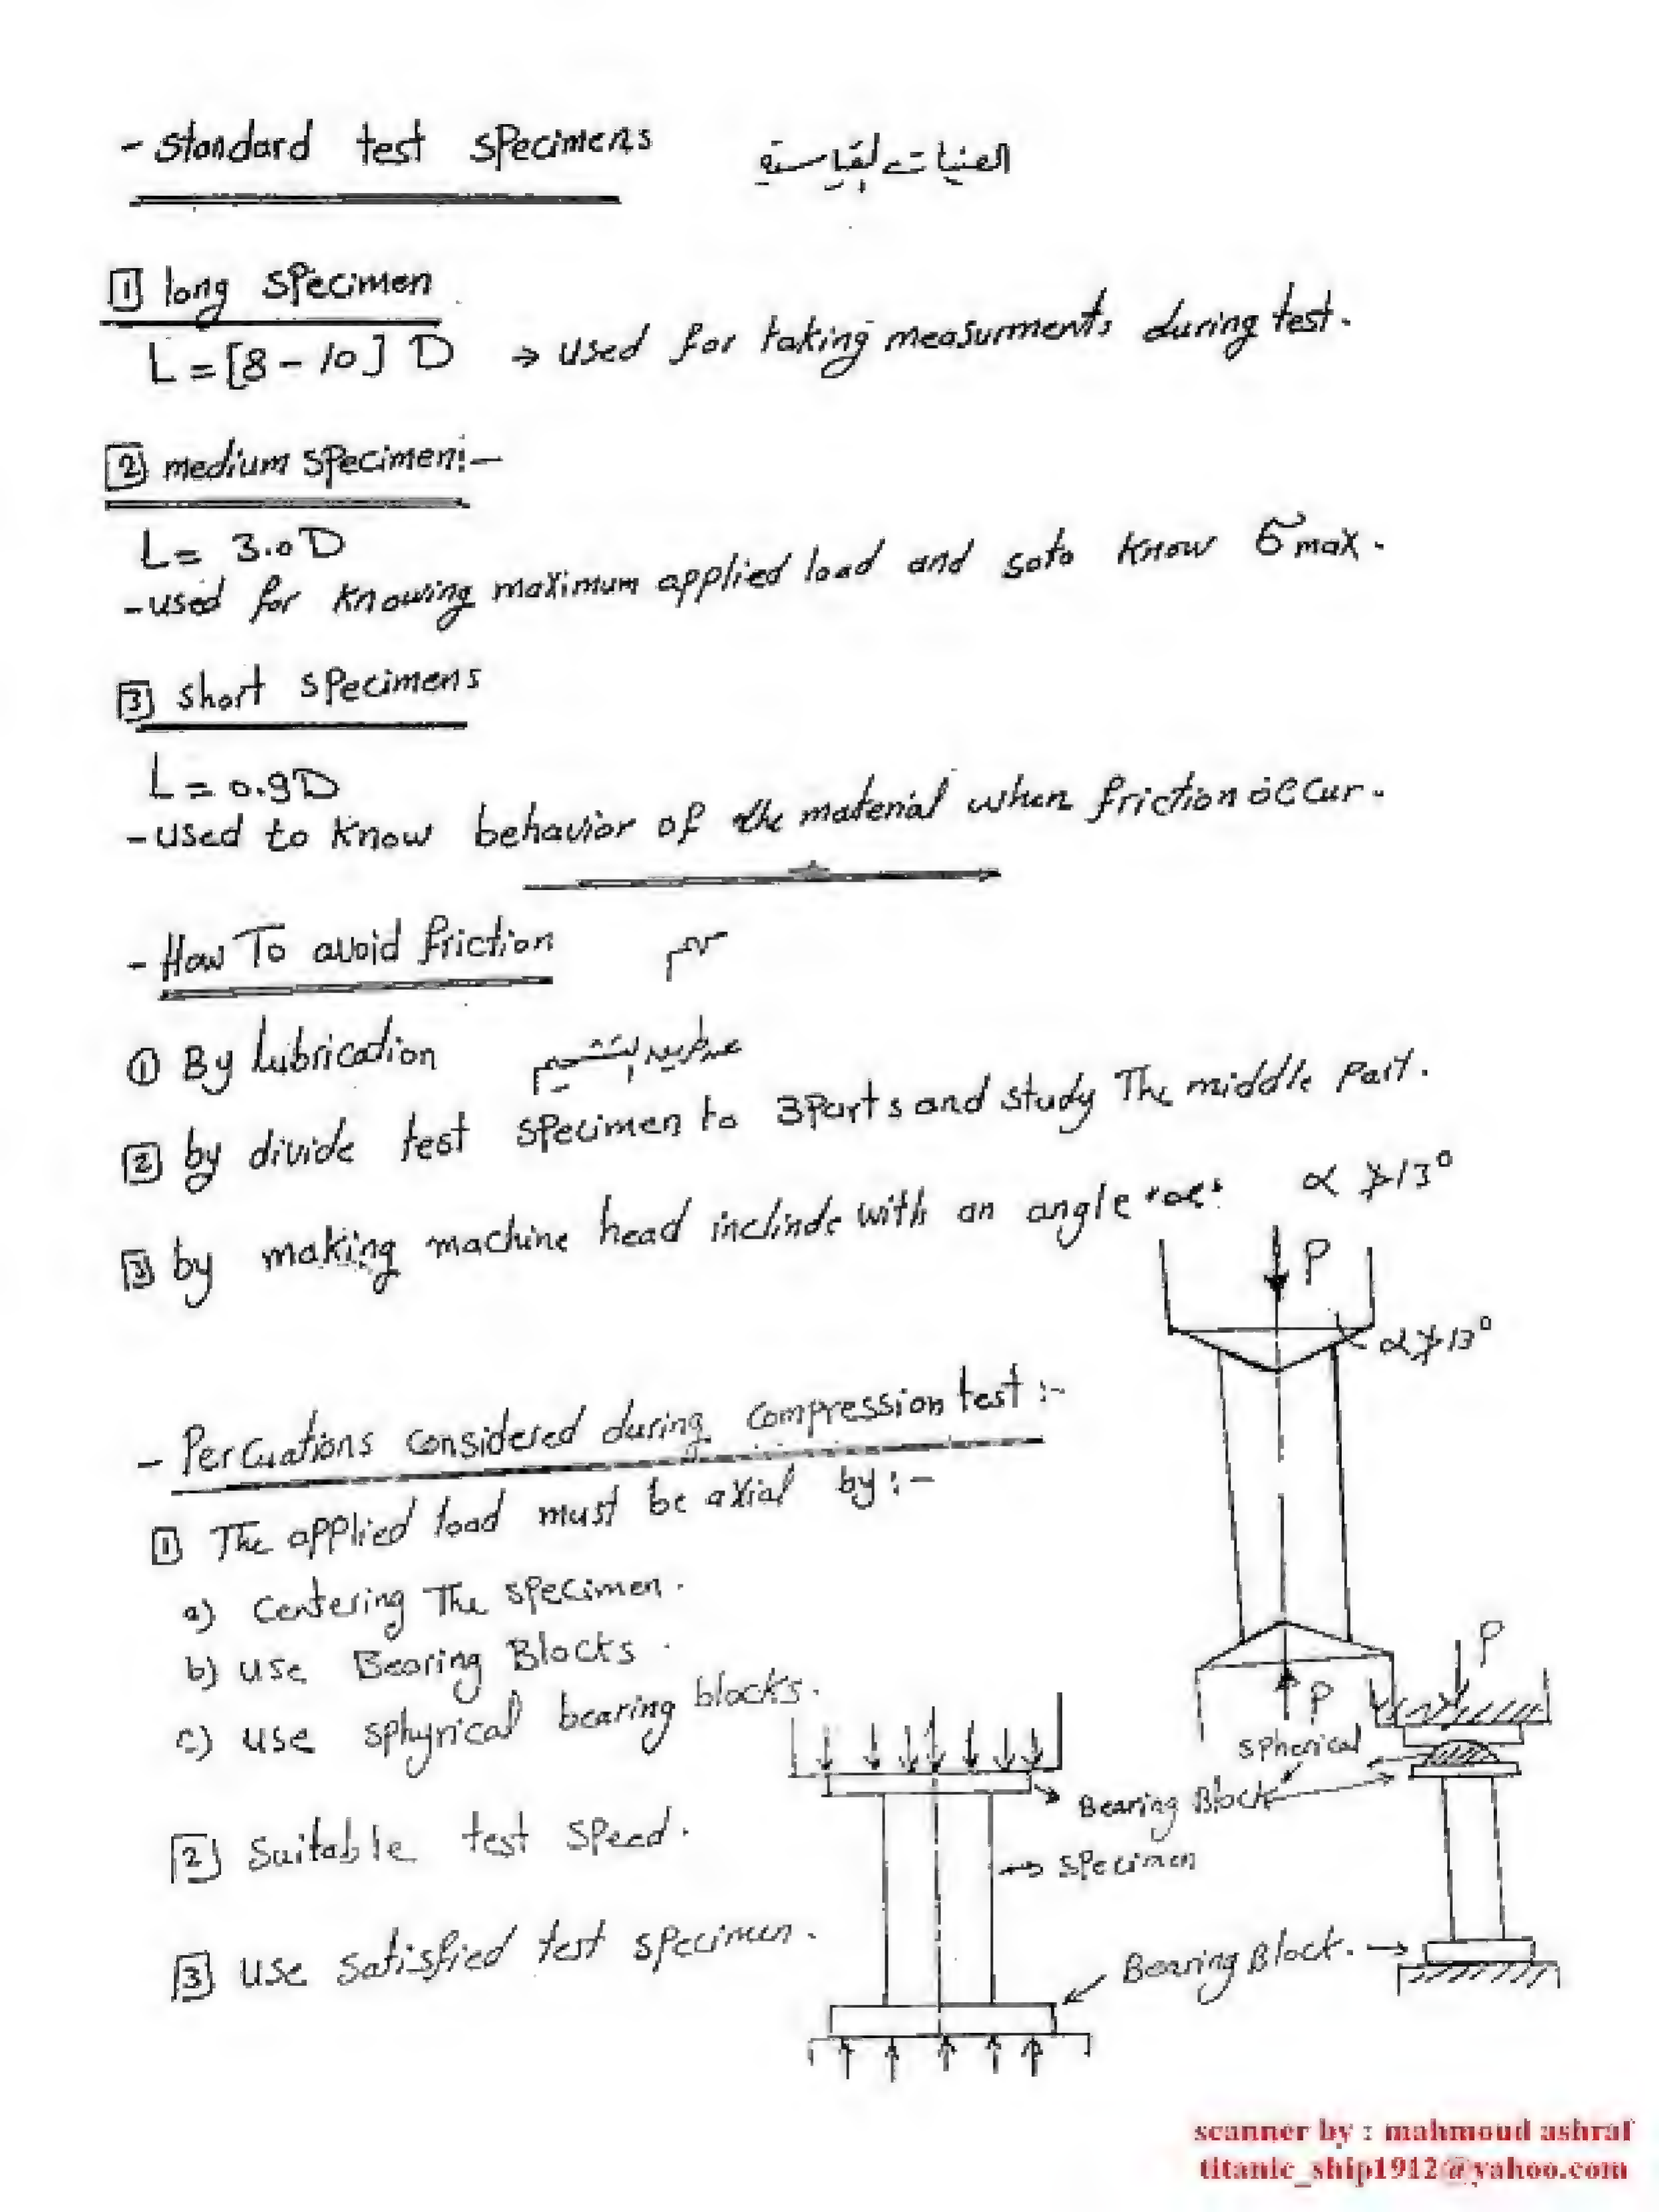 - standard test specimens العينات القياسية
1 long specimen
L = [8 - 10] D → used for taking measurments during test.
2 medium specimen:-
L = 3.0 D
- used for knowing maximum applied load and soto know σmax.
3 short specimens
L = 0.9D
- used to know behavior of the material when friction occur.
- How To avoid friction
① By Lubrication بالتشحيم
2 by divide test specimen to 3 Parts and study The middle part.
3 by making machine head inclinde with an angle "α" α ≯ 13°
P
α ≯ 13°
- Percuations considered during compression test :-
1 The applied load must be axial by :-
a) Centering The specimen.
b) use Bearing Blocks.
c) use sphyrical bearing blocks.
P
P
spherical
Bearing Block
2 Suitable test speed.
→ specimen
3 use satisfied test specimen.
Bearing Block. →
scanner by : mahmoud ashraf
titanic_ship1912@yahoo.com